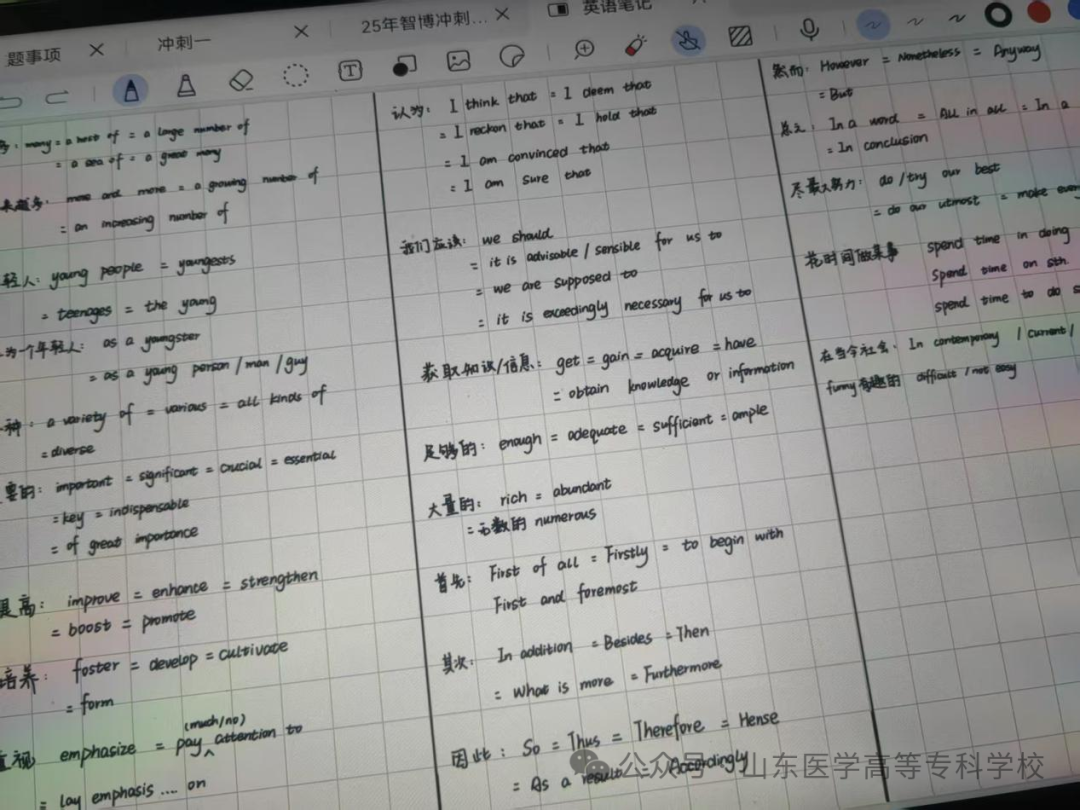 题事项
冲刺一
25年智博冲刺...
英语笔记
多: many = a host of = a large number of
= a sea of = a great many
来越多: more and more = a growing number of
= an increasing number of
轻人: young people = youngests
= teenages = the young
为一个年轻人: as a youngster
= as a young person / man / guy
一种: a variety of = various = all kinds of
= diverse
要的: important = significant = crucial = essential
= key = indispensable
= of great importance
提高: improve = enhance = strengthen
= boost = promote
培养: foster = develop = cultivate
= form
(much/no)
重视 emphasize = pay ^ attention to
= lay emphasis .... on
认为: I think that = I deem that
= I reckon that = I hold that
= I am convinced that
= I am sure that
我们应该: we should
= it is advisable / sensible for us to
= we are supposed to
= it is exceedingly necessary for us to
获取知识/信息: get = gain = acquire = have
= obtain knowledge or information
足够的: enough = adequate = sufficient = ample
大量的: rich = abundant
= 无数的 numerous
首先: First of all = Firstly = to begin with
First and foremost
其次: In addition = Besides = Then
= What is more = Furthermore
因此: So = Thus = Therefore = Hense
= As a result = Accordingly
然而: However = Nonetheless = Anyway
= But
总之: In a word = All in all = In a
= In conclusion
尽最大努力: do / try our best
= do our utmost = make every
花时间做某事 spend time in doing
spend time on sth.
spend time to do s
在当今社会、In contemporary / current /
funny有趣的 difficult / not easy
公众号 · 山东医学高等专科学校